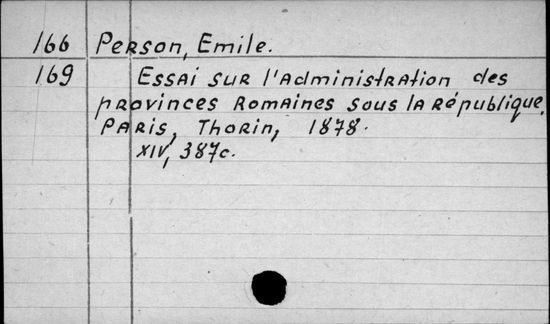 166 Person, Emile.
169 Essai sur l'administration des
provinces romaines sous la République.
Paris, Thorin, 1878.
XIV, 387c.